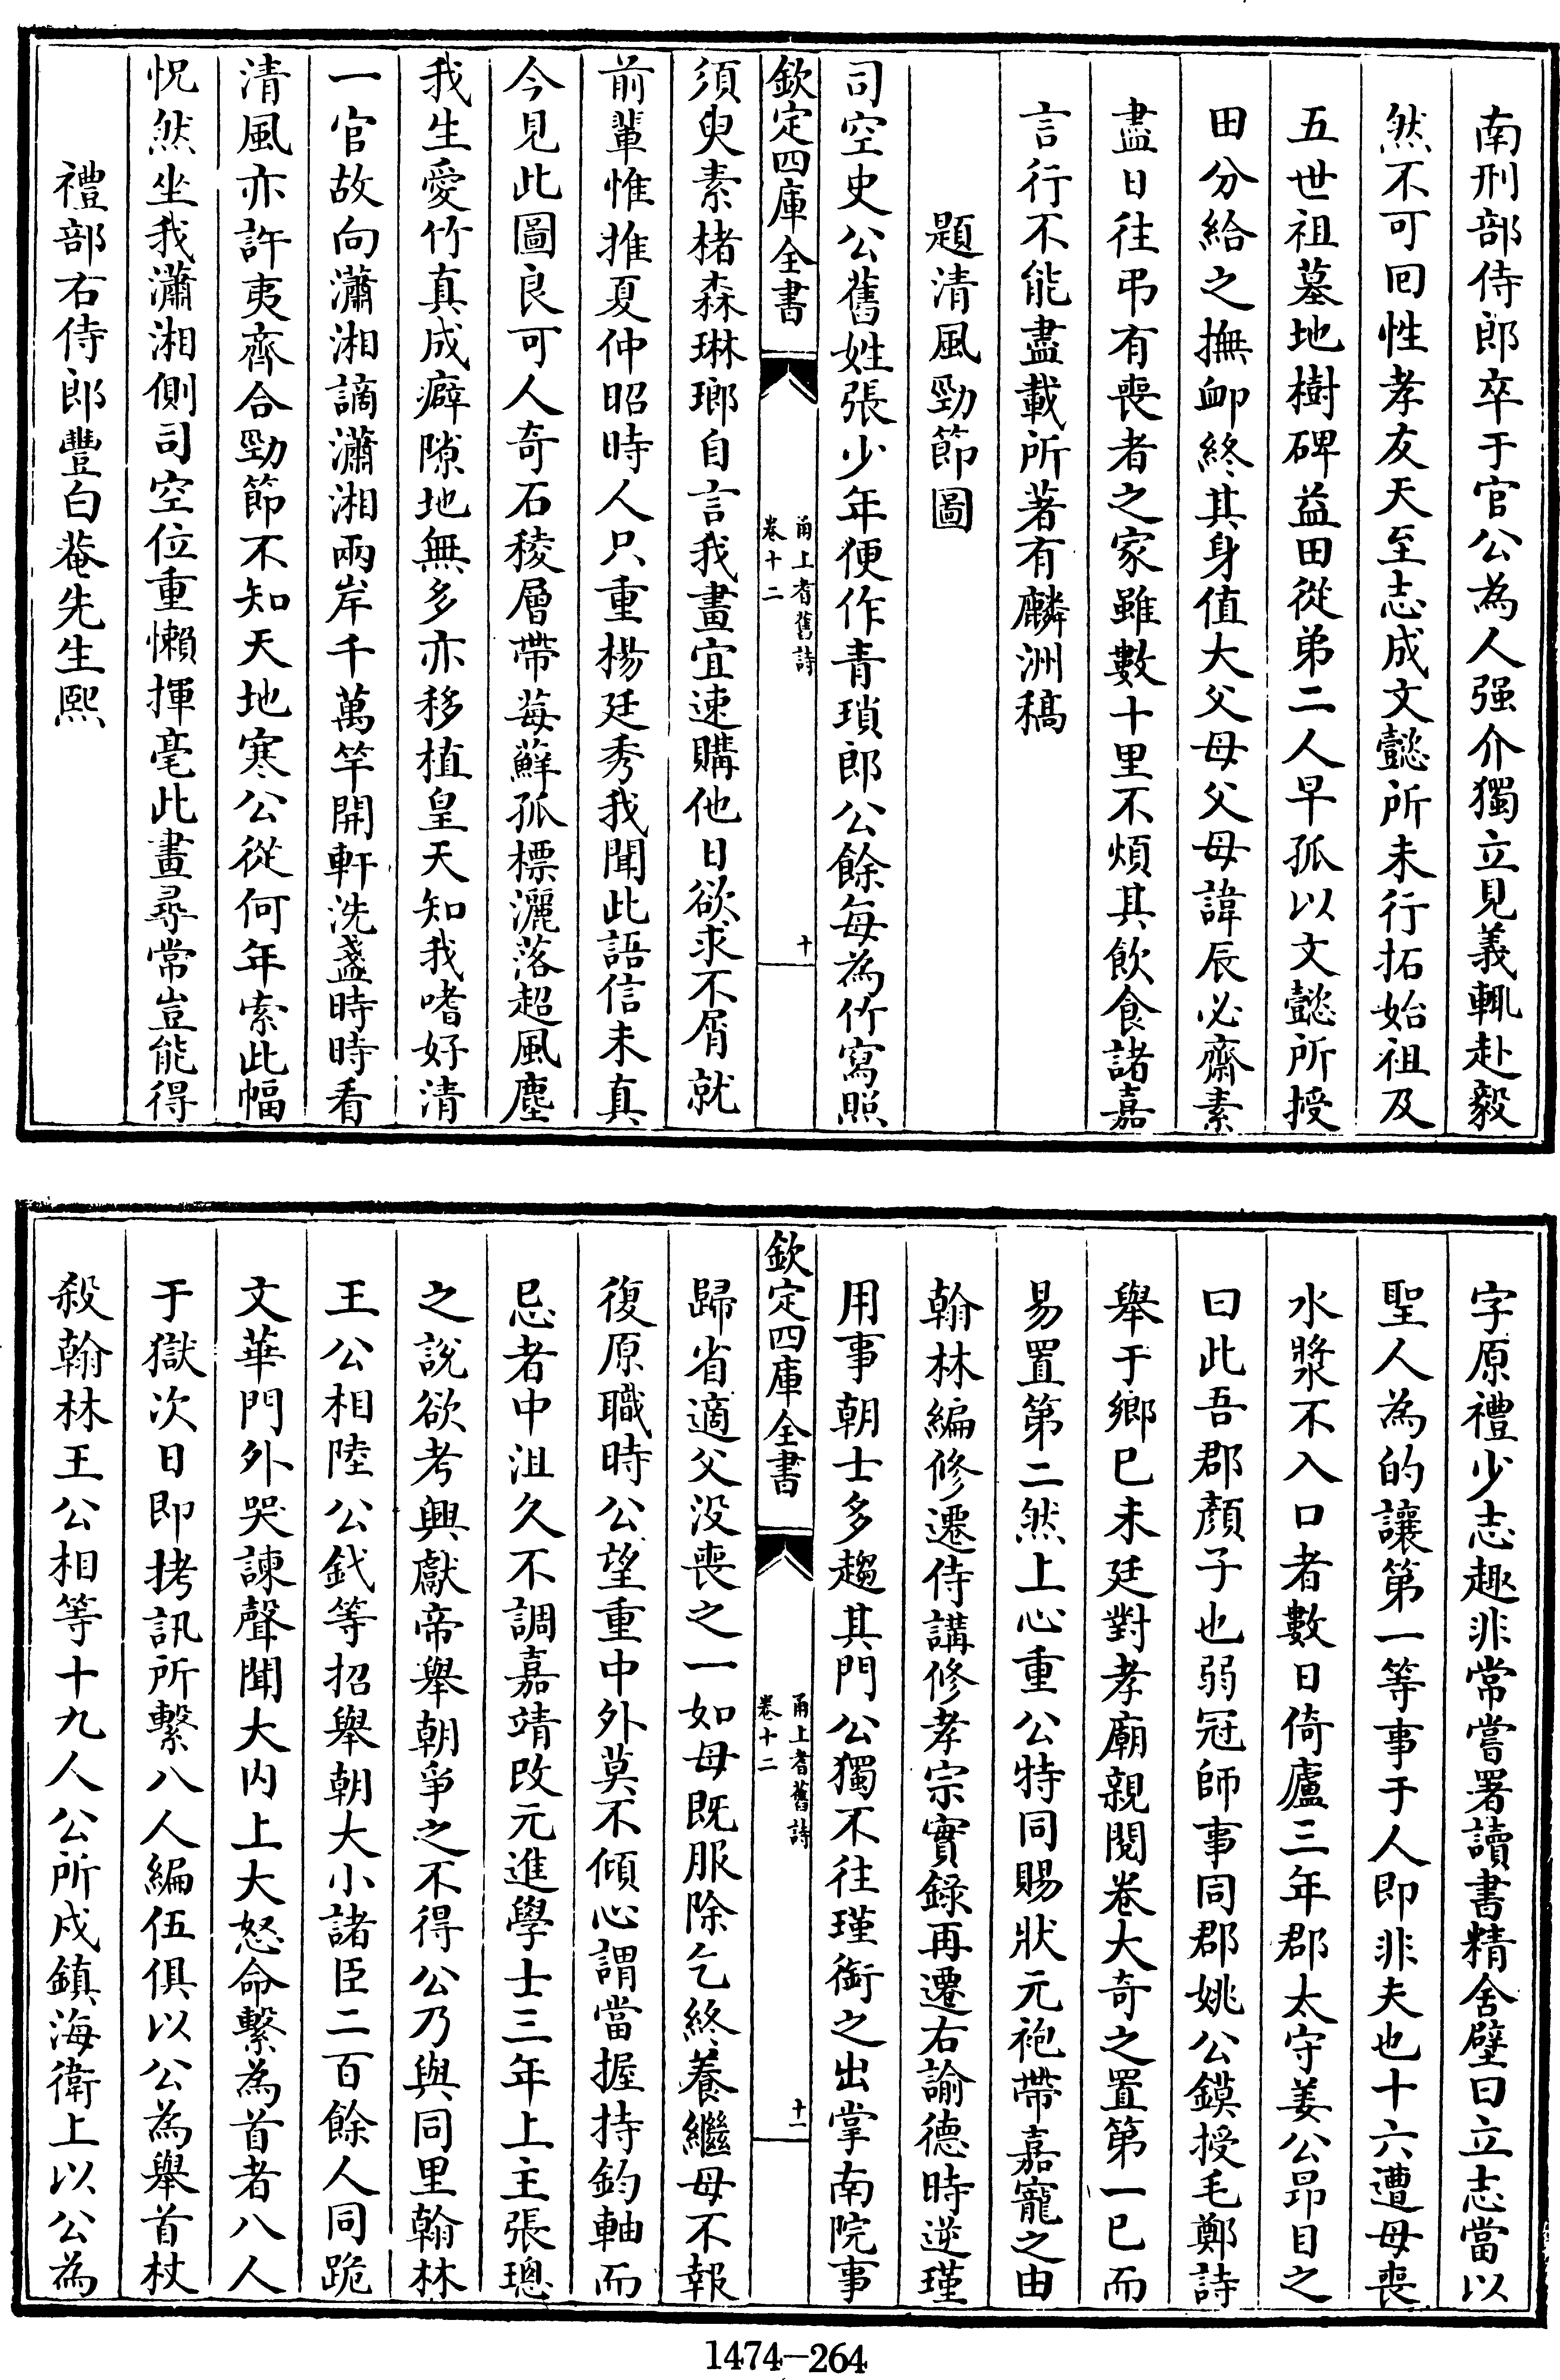 南刑部侍郎卒于官公為人强介獨立見義輒赴毅
然不可回性孝友天至志成文懿所未行拓始祖及
五世祖墓地樹碑益田從弟二人早孤以文懿所授
田分給之撫䘏終其身值大父母父母諱辰必齋素
盡日往弔有喪者之家雖數十里不煩其飲食諸嘉
言行不能盡載所著有麟洲稿
題清風勁節圖
司空史公舊姓張少年便作青瑣郎公餘每為竹寫照
欽定四庫全書
甬上耆舊詩
卷十二
十
須臾素楮森琳瑯自言我畫宜速購他日欲求不屑就
前輩惟推夏仲昭時人只重楊廷秀我聞此語信未真
今見此圖良可人奇石稜層帶莓蘚孤標灑落超風塵
我生愛竹真成癖隙地無多亦移植皇天知我嗜好清
一官故向瀟湘謫瀟湘兩岸千萬竿開軒洗盞時時看
清風亦許夷齊合勁節不知天地寒公從何年索此幅
怳然坐我瀟湘側司空位重懶揮毫此畫尋常豈能得
禮部右侍郎豐白菴先生熙
字原禮少志趣非常嘗署讀書精舍壁曰立志當以
聖人為的讓第一等事于人即非夫也十六遭母喪
水漿不入口者數日倚廬三年郡太守姜公昂目之
曰此吾郡顏子也弱冠師事同郡姚公鏌授毛鄭詩
舉于鄉已未廷對孝廟親閱卷大奇之置第一已而
易置第二然上心重公特同賜狀元袍帶嘉寵之由
翰林編修遷侍講修孝宗實錄再遷右諭德時逆瑾
用事朝士多趨其門公獨不往瑾銜之出掌南院事
欽定四庫全書
甬上耆舊詩
卷十二
十一
歸省適父没喪之一如母既服除乞終養繼母不報
復原職時公望重中外莫不傾心謂當握持鈞軸而
忌者中沮久不調嘉靖改元進學士三年上主張璁
之說欲考興獻帝舉朝爭之不得公乃與同里翰林
王公相陸公釴等招舉朝大小諸臣二百餘人同跪
文華門外哭諫聲聞大內上大怒命繫為首者八人
于獄次日即拷訊所繫八人編伍俱以公為舉首杖
殺翰林王公相等十九人公所戍鎮海衛上以公為
1474-264